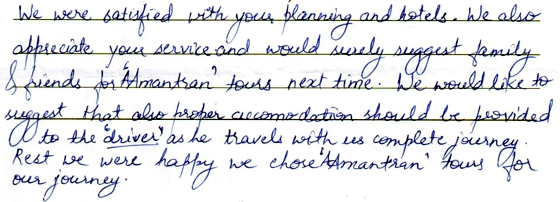 We were satisfied with your planning and hotels. We also
appreciate your service and would surely suggest family
& friends for 'Amantran' tours next time. We would like to
suggest that also proper accomodation should be provided
to the "driver" as he travels with us complete journey.
Rest we were happy we chose 'Amantran' tours for
our journey.